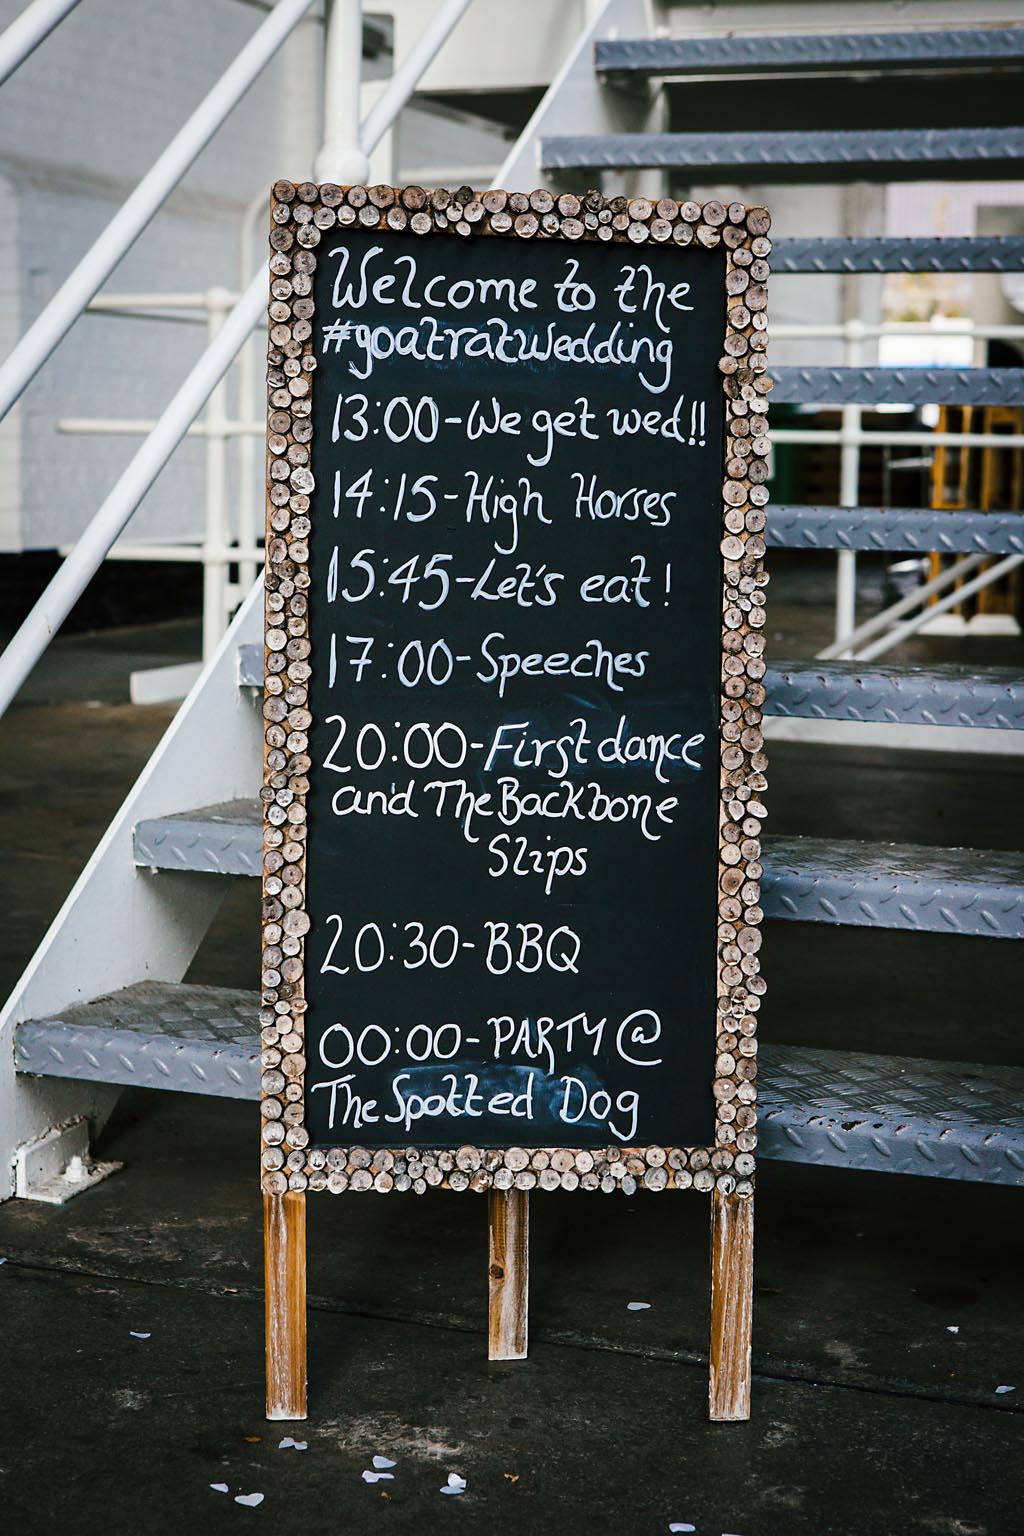 Welcome to the
#goatratwedding
13:00-We get wed!!
14:15-High Horses
15:45-Let's eat!
17:00-Speeches
20:00-First dance
and The Backbone
Slips
20:30-BBQ
00:00-PARTY @
The Spotted Dog